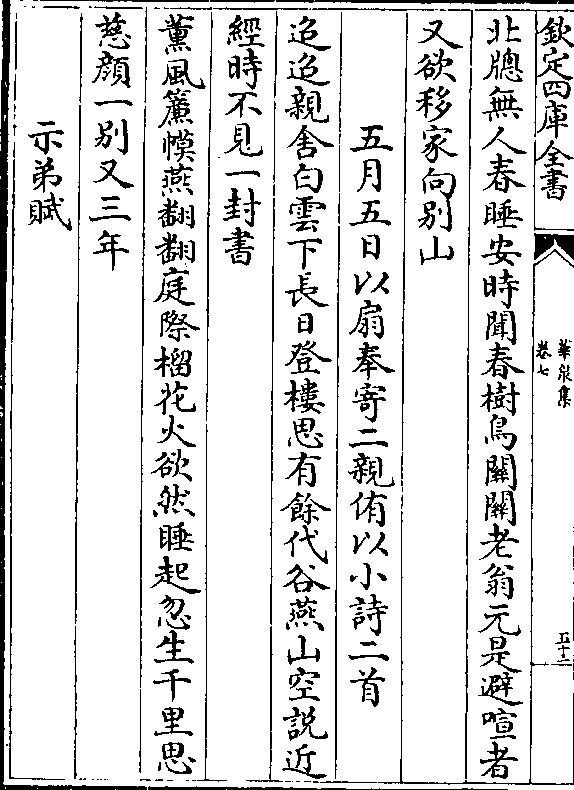 欽定四庫全書
華泉集
卷七
五十二
北牕無人春睡安時聞春樹鳥關關老翁元是避喧者
又欲移家向别山
五月五日以扇奉寄二親侑以小詩二首
迢迢親舍白雲下長日登樓思有餘代谷燕山空説近
經時不見一封書
薰風簾幙燕翻翻庭際榴花火欲然睡起忽生千里思
慈顔一别又三年
示弟賦